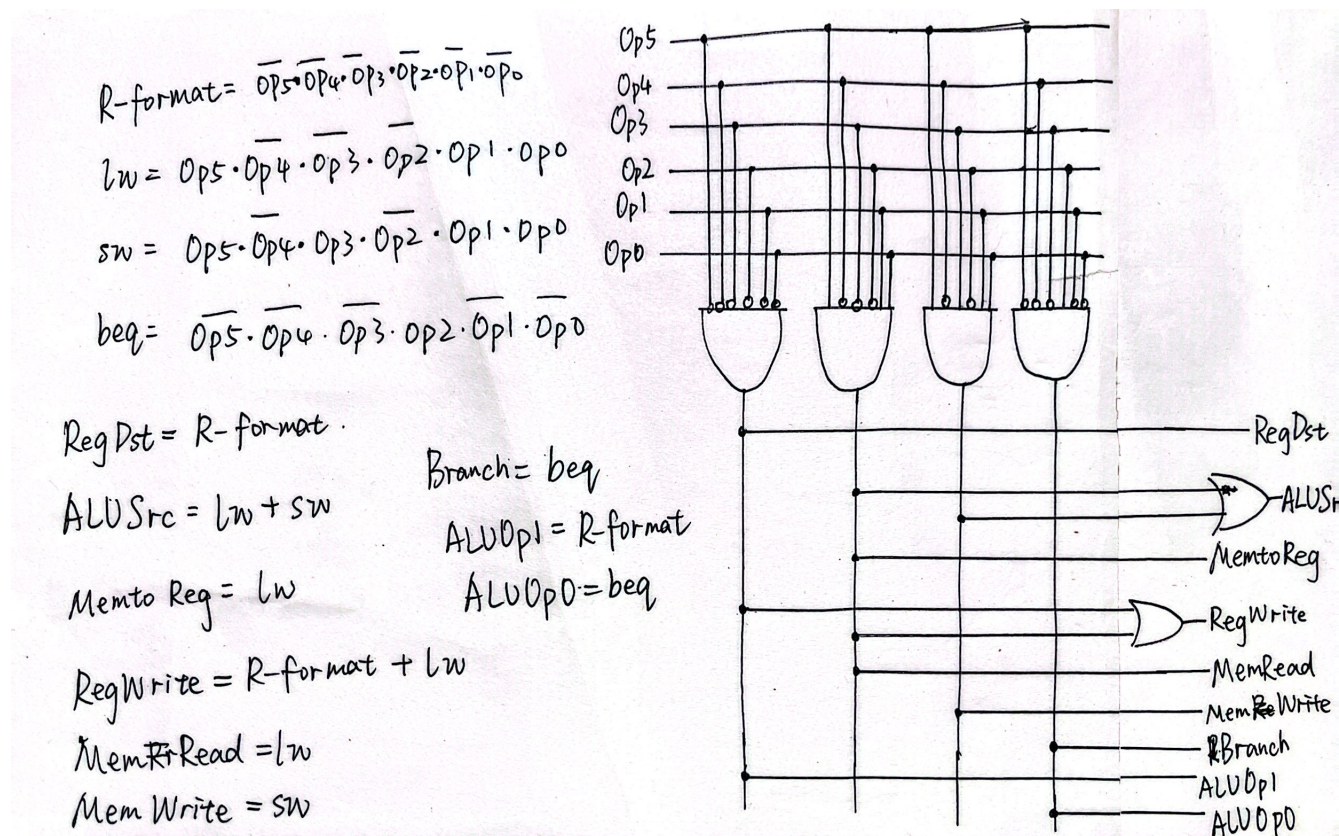 R-format = \overline{Op5}·\overline{Op4}·\overline{Op3}·\overline{Op2}·\overline{Op1}·\overline{Op0}
lw = Op5·\overline{Op4}·\overline{Op3}·\overline{Op2}·Op1·Op0
sw = Op5·\overline{Op4}·Op3·\overline{Op2}·Op1·Op0
beq = \overline{Op5}·\overline{Op4}·\overline{Op3}·Op2·\overline{Op1}·\overline{Op0}
RegDst = R-format.
ALUSrc = lw + sw
MemtoReg = lw
RegWrite = R-format + lw
MemRead = lw
MemWrite = sw
Branch = beq
ALUOp1 = R-format
ALUOp0 = beq
Op5
Op4
Op3
Op2
Op1
Op0
RegDst
ALUSr
MemtoReg
RegWrite
MemRead
MemWrite
Branch
ALUOp1
ALUOp0